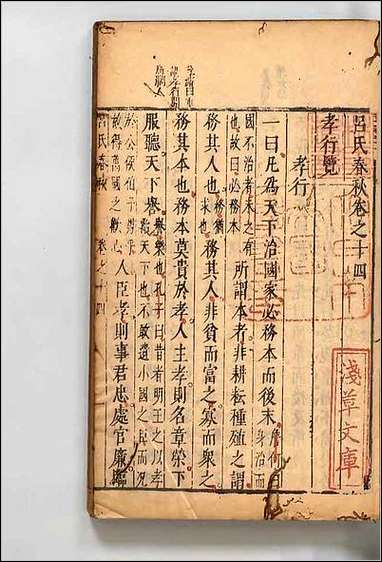 呂氏春秋卷之十四
孝行覽
孝行
一曰凡為天下治國家必務本而後末詹何曰身治而
國不治者未之有也故曰務本所謂本者非耕耘種殖之謂
務其人也務猶求也務其人非貧而富之寡而眾之
務其本也務本莫貴於孝人主孝則名章榮下
服聽天下譽譽樂也孔子曰昔者明王之以孝治天下也不敢遺小國之臣而況
於公侯伯子男乎故得萬國之歡心人臣孝則事君忠處官廉臨
呂氏春秋 卷之十四
淺草文庫